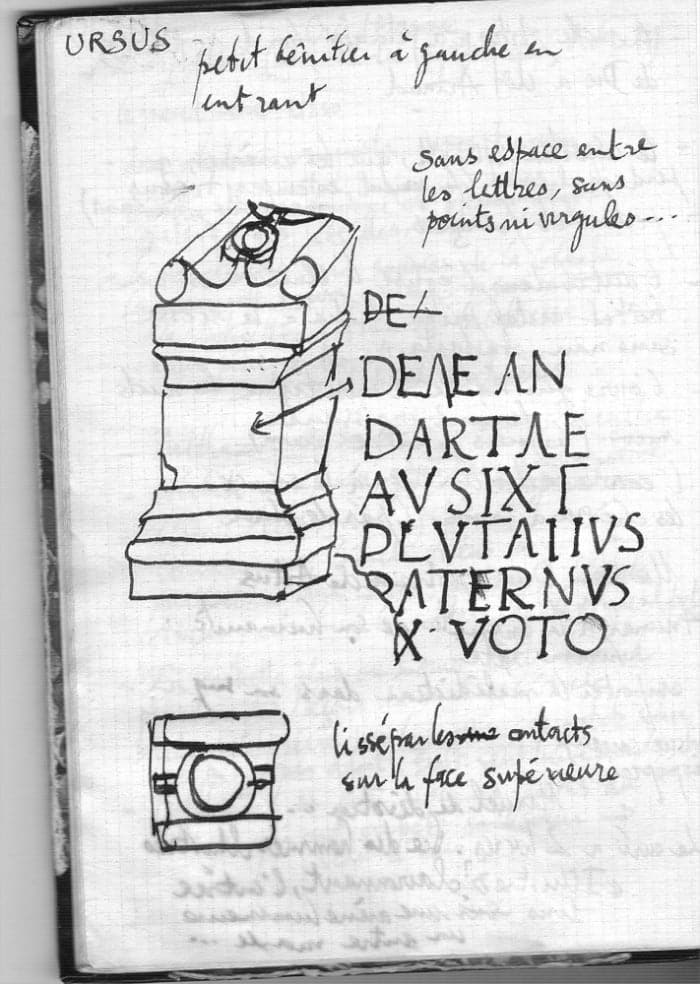 URSUS
petit bénitier à gauche en
entrant
sans espace entre
les lettres, sans
points ni virgules...
DE
DEAE AN
DARTAE
AV SIX T
PLVTATIVS
PATERNVS
X· VOTO
lissé par les contacts
sur la face supérieure